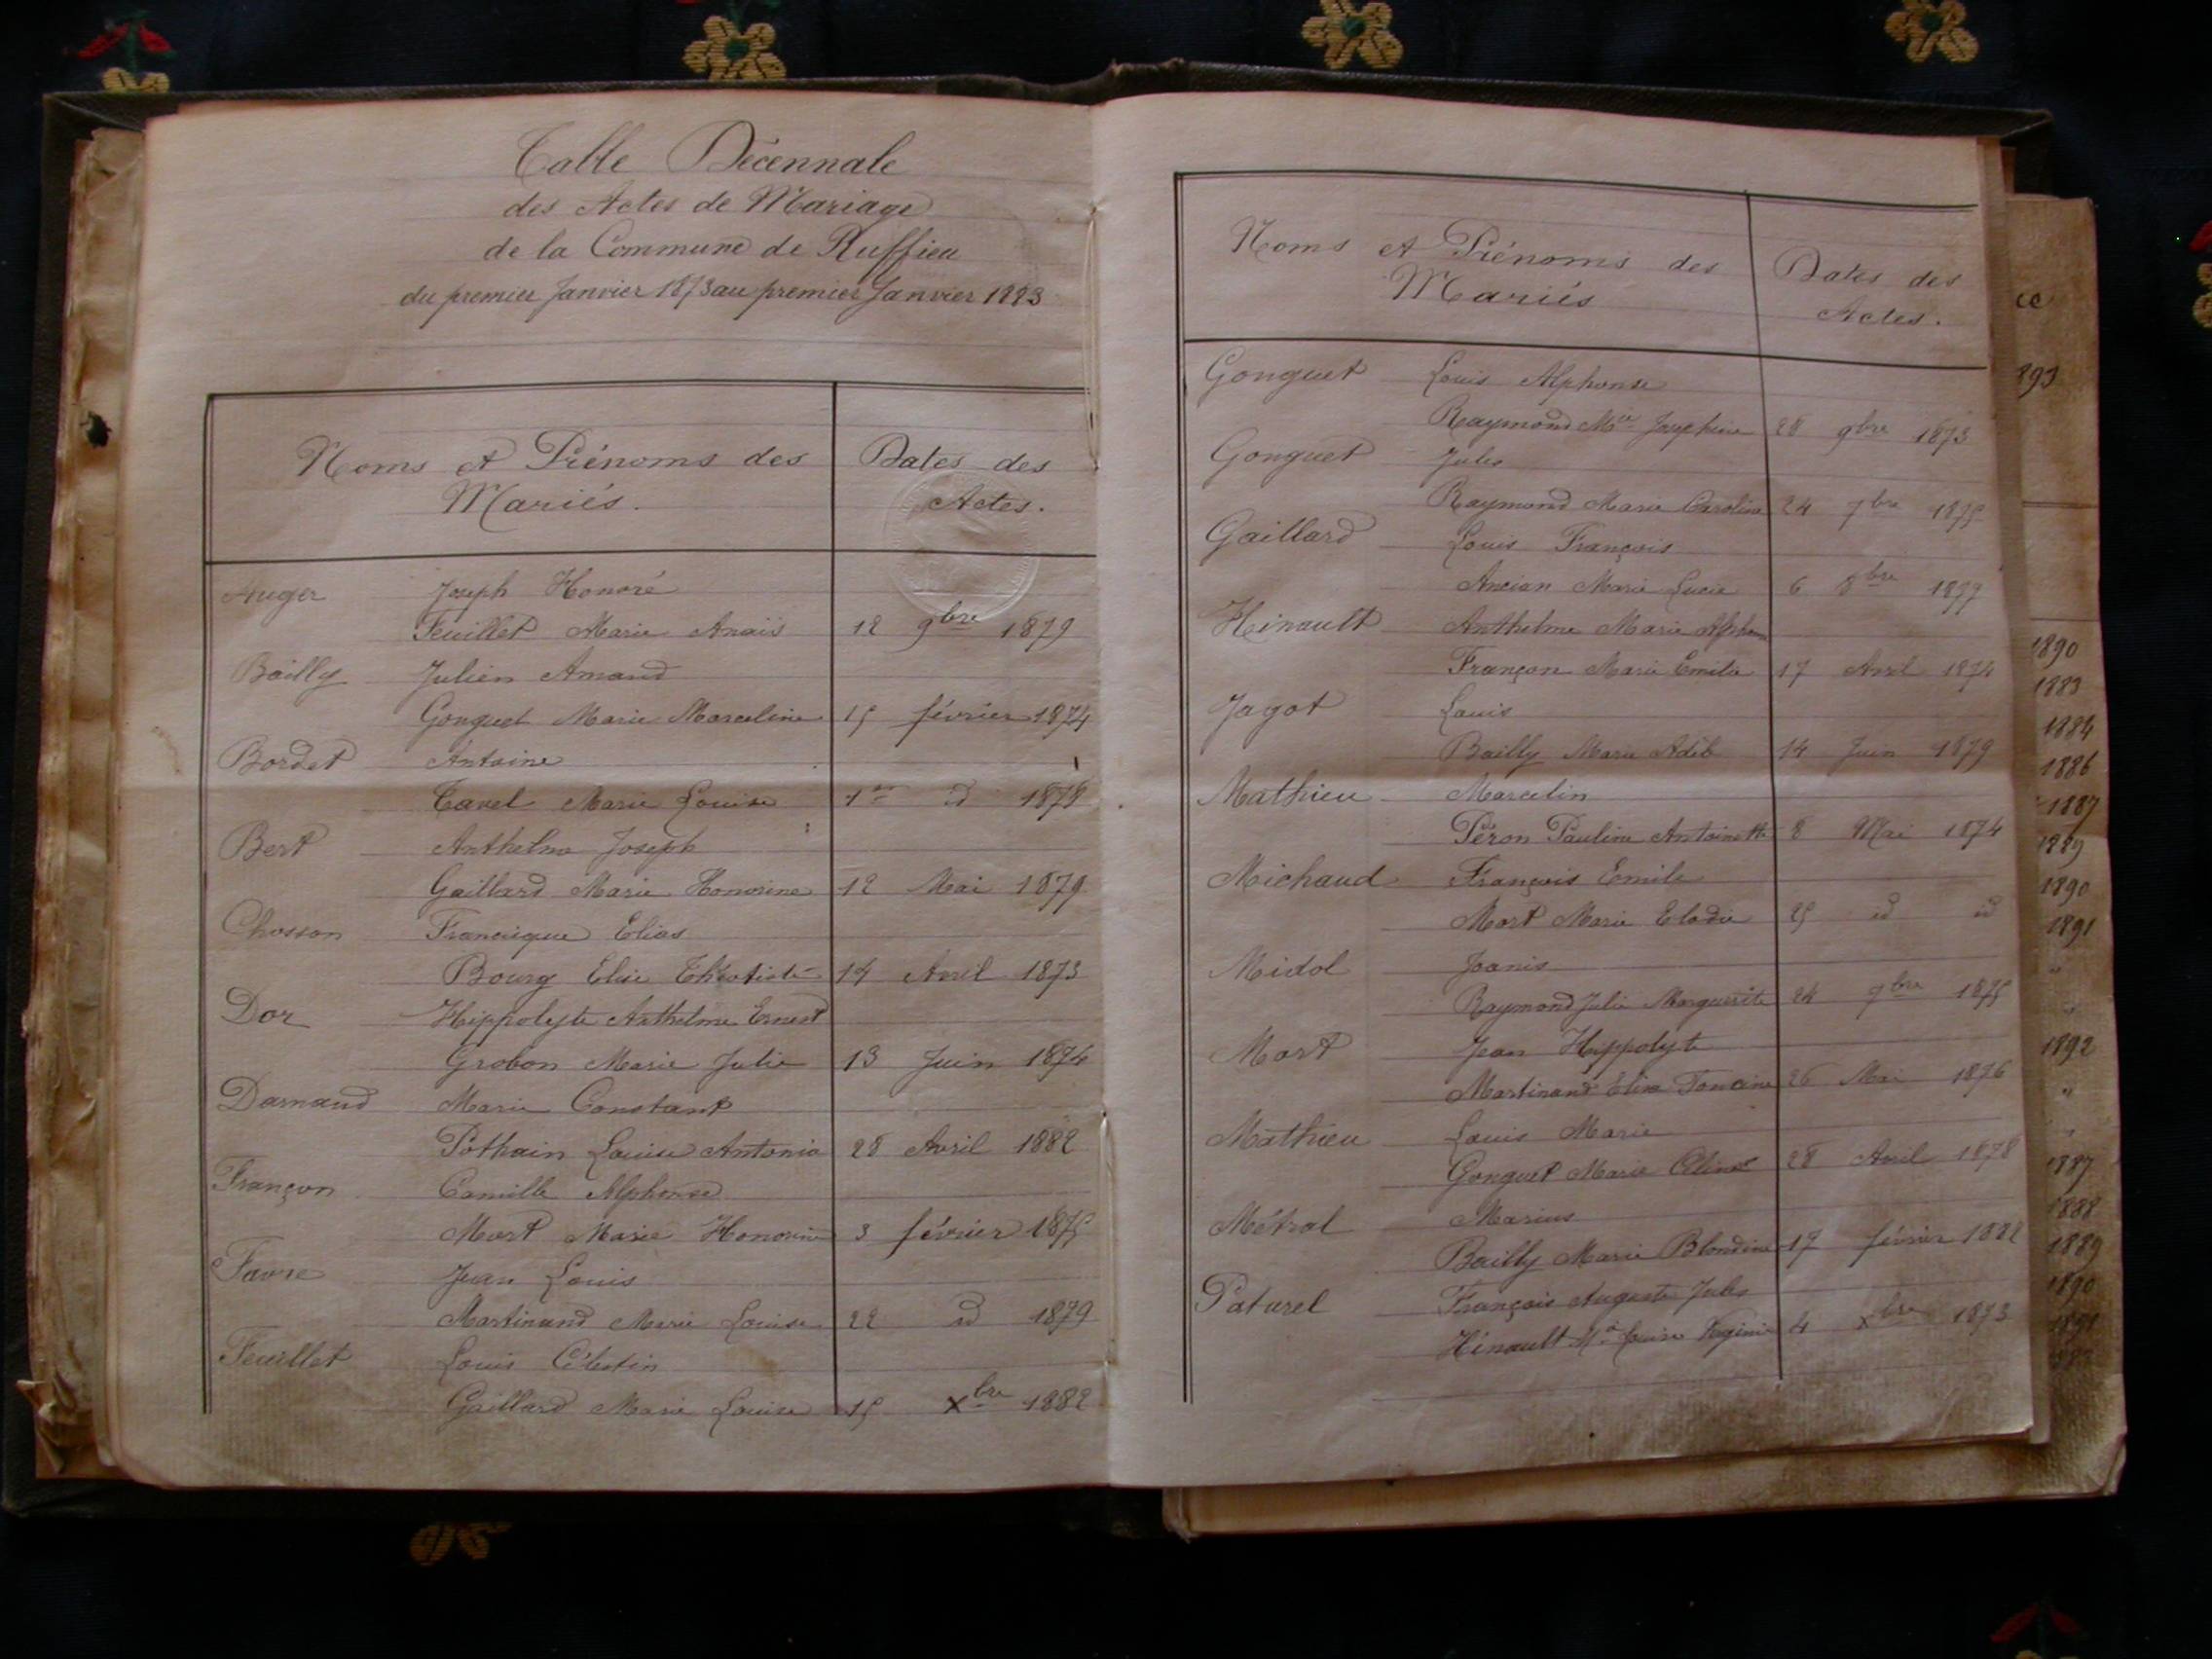 Table Décennale
des Actes de Mariage
de la Commune de Ruffieu
du premier Janvier 1873 au premier Janvier 1883
Noms et Prénoms des Mariés.
Dates des Actes.
Auger Joseph Honoré
Feuillet Marie Anaïs 12 9bre 1879
Bailly Julien Amand
Gonguet Marie Marceline 15 février 1874
Bordet Antoine
Tavel Marie Louise 1er id 1878
Bert Anthelme Joseph
Gaillard Marie Honorine 12 Mai 1879
Chosson Francisque Elias
Bourg Elise Théotiste 14 Avril 1873
Dor Hippolyte Anthelme Ernest
Grobon Marie Julie 13 Juin 1874
Darnand Marie Constant
Pothain Louise Antonia 28 Avril 1882
Françon Camille Alphonse
Mort Marie Honorine 3 février 1875
Favre Jean Louis
Martinand Marie Louise 22 id 1879
Feuillet Louis Célestin
Gaillard Marie Louise 15 Xbre 1882
Noms et Prénoms des Mariés
Dates des Actes.
Gonguet Louis Alphonse
Raymond Mie Joséphine 28 9bre 1873
Gonguet Jules
Raymond Marie Caroline 24 9bre 1875
Gaillard Louis François
Ancian Marie Lucie 6 8bre 1877
Hinault Anthelme Marie Alphonse
Françon Marie Emilie 17 Avril 1874
Jagot Louis
Bailly Marie Adèle 14 Juin 1879
Mathieu Marcelin
Péron Pauline Antoinette 8 Mai 1874
Michaud François Emile
Mort Marie Elodie 25 id id
Midol Joanis
Raymond Julie Marguerite 24 9bre 1875
Mort Jean Hippolyte
Martinand Elisa 26 Mai 1876
Mathieu Louis Marie
Gonguet Marie 28 Avril 1878
Métral Marius
Bailly Marie Blondine 17 février 1882
Paturel François Auguste Jules
Hinault Louise Virginie 4 Xbre 1873
1890
1883
1884
1886
1887
1889
1890
1891
"
"
1892
"
"
1887
1888
1889
1890
1891